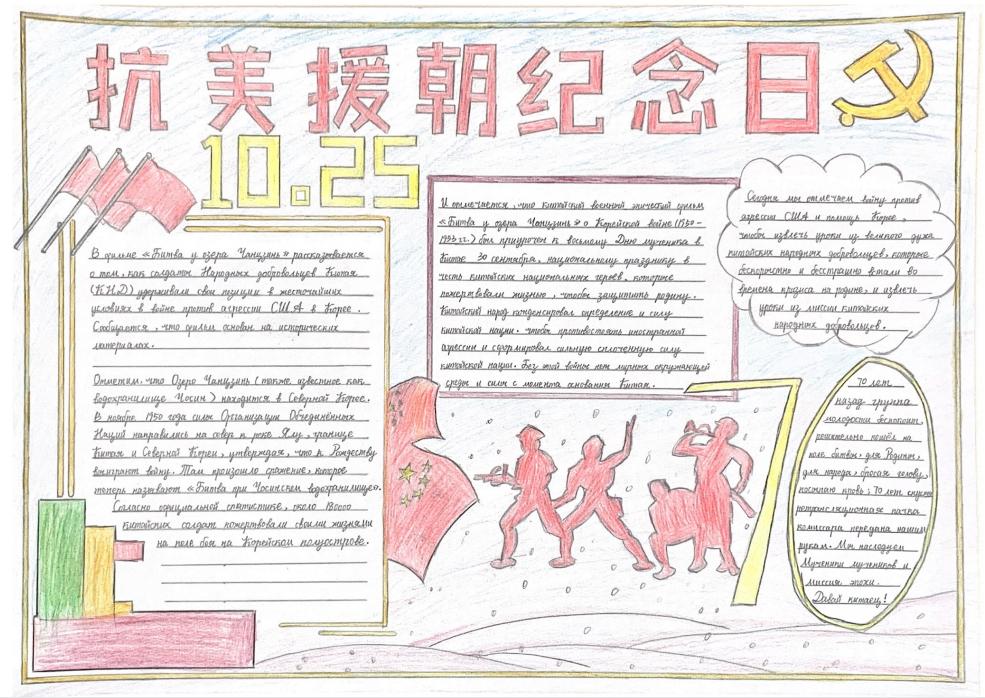 抗美援朝纪念日
10.25
В фильме «Битва у озера Чанцзинь» рассказывается
о том, как солдаты Народных добровольцев Китая
(К.Н.Д) удерживали свои позиции в жесточайших
условиях в войне против агрессии США в Корее.
Сообщается, что фильм основан на исторических
материалах.
Отметим, что Озеро Чанцзинь (также известное как
водохранилище Чосин) находится в Северной Корее.
В ноябре 1950 года силы Организации Объединённых
Наций направились на север к реке Ялу, границе
Китая и Северной Кореи, утверждая, что к Рождеству
выиграют войну. Там произошло сражение, которое
теперь называют «Битва при Чосинском водохранилище».
Согласно официальной статистике, около 18000
китайских солдат пожертвовали своими жизнями
на поле боя на Корейском полуострове.
И отмечается, что китайский военный эпический фильм
«Битва у озера Чанцзинь» о Корейской войне (1950-
1953 гг.) был приурочен к восьмому Дню мученика в
Китае 30 сентября, национальному празднику в
честь китайских национальных героев, которое
пожертвовали жизнью, чтобы защитить родину.
Китайский народ конденсировал определение и силу
китайской нации, чтобы противостоять иностранной
агрессии и сформировал сильную сплоченную силу
китайской нации. Без этой войны нет мирных окружающей
среды и силы с момента основания Китая.
Сегодня мы отмечаем войну против
агрессии США и помощь Корее,
чтобы извлечь уроки из великого духа
китайских народных добровольцев, которые
бескорыстно и бесстрашно встали во
времена кризиса на родине, и извлечь
уроки из миссии китайских
народных добровольцев.
70 лет
назад группа
молодости беспокоит,
решительно пошёл на
поле битвы для Родины,
для народа, бросая голову,
посыпаю кровь; 70 лет спустя
ретрансляционная палка
комиссара передана нашим
рукам. Мы наследуем
Мученики мучеников и
миссия эпохи.
Давай китаец!
7